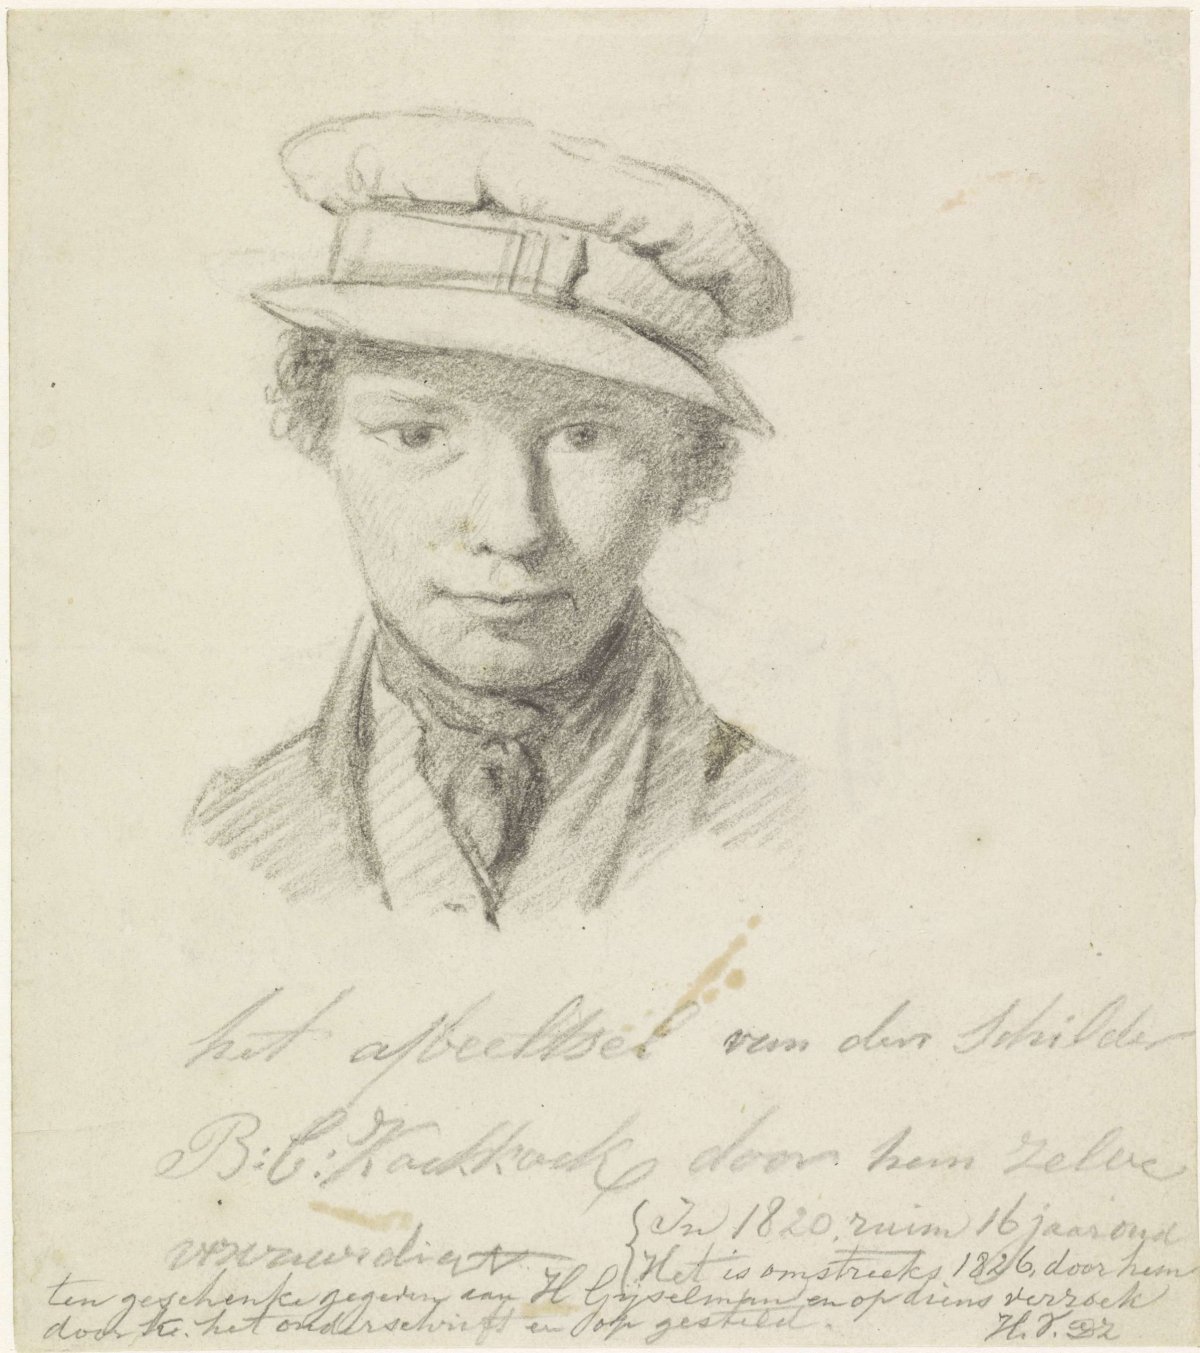 het afbeeltsel van den Schilder
B: C: Koekkoek door hem zelve
vervaardigt
In 1820, ruim 16 jaar oud
Het is omstreeks 1826, door hem
ten geschenke gegeven aan H Gijselman en op diens verzoek
door het onderschrift en op gesteld.
H. V.